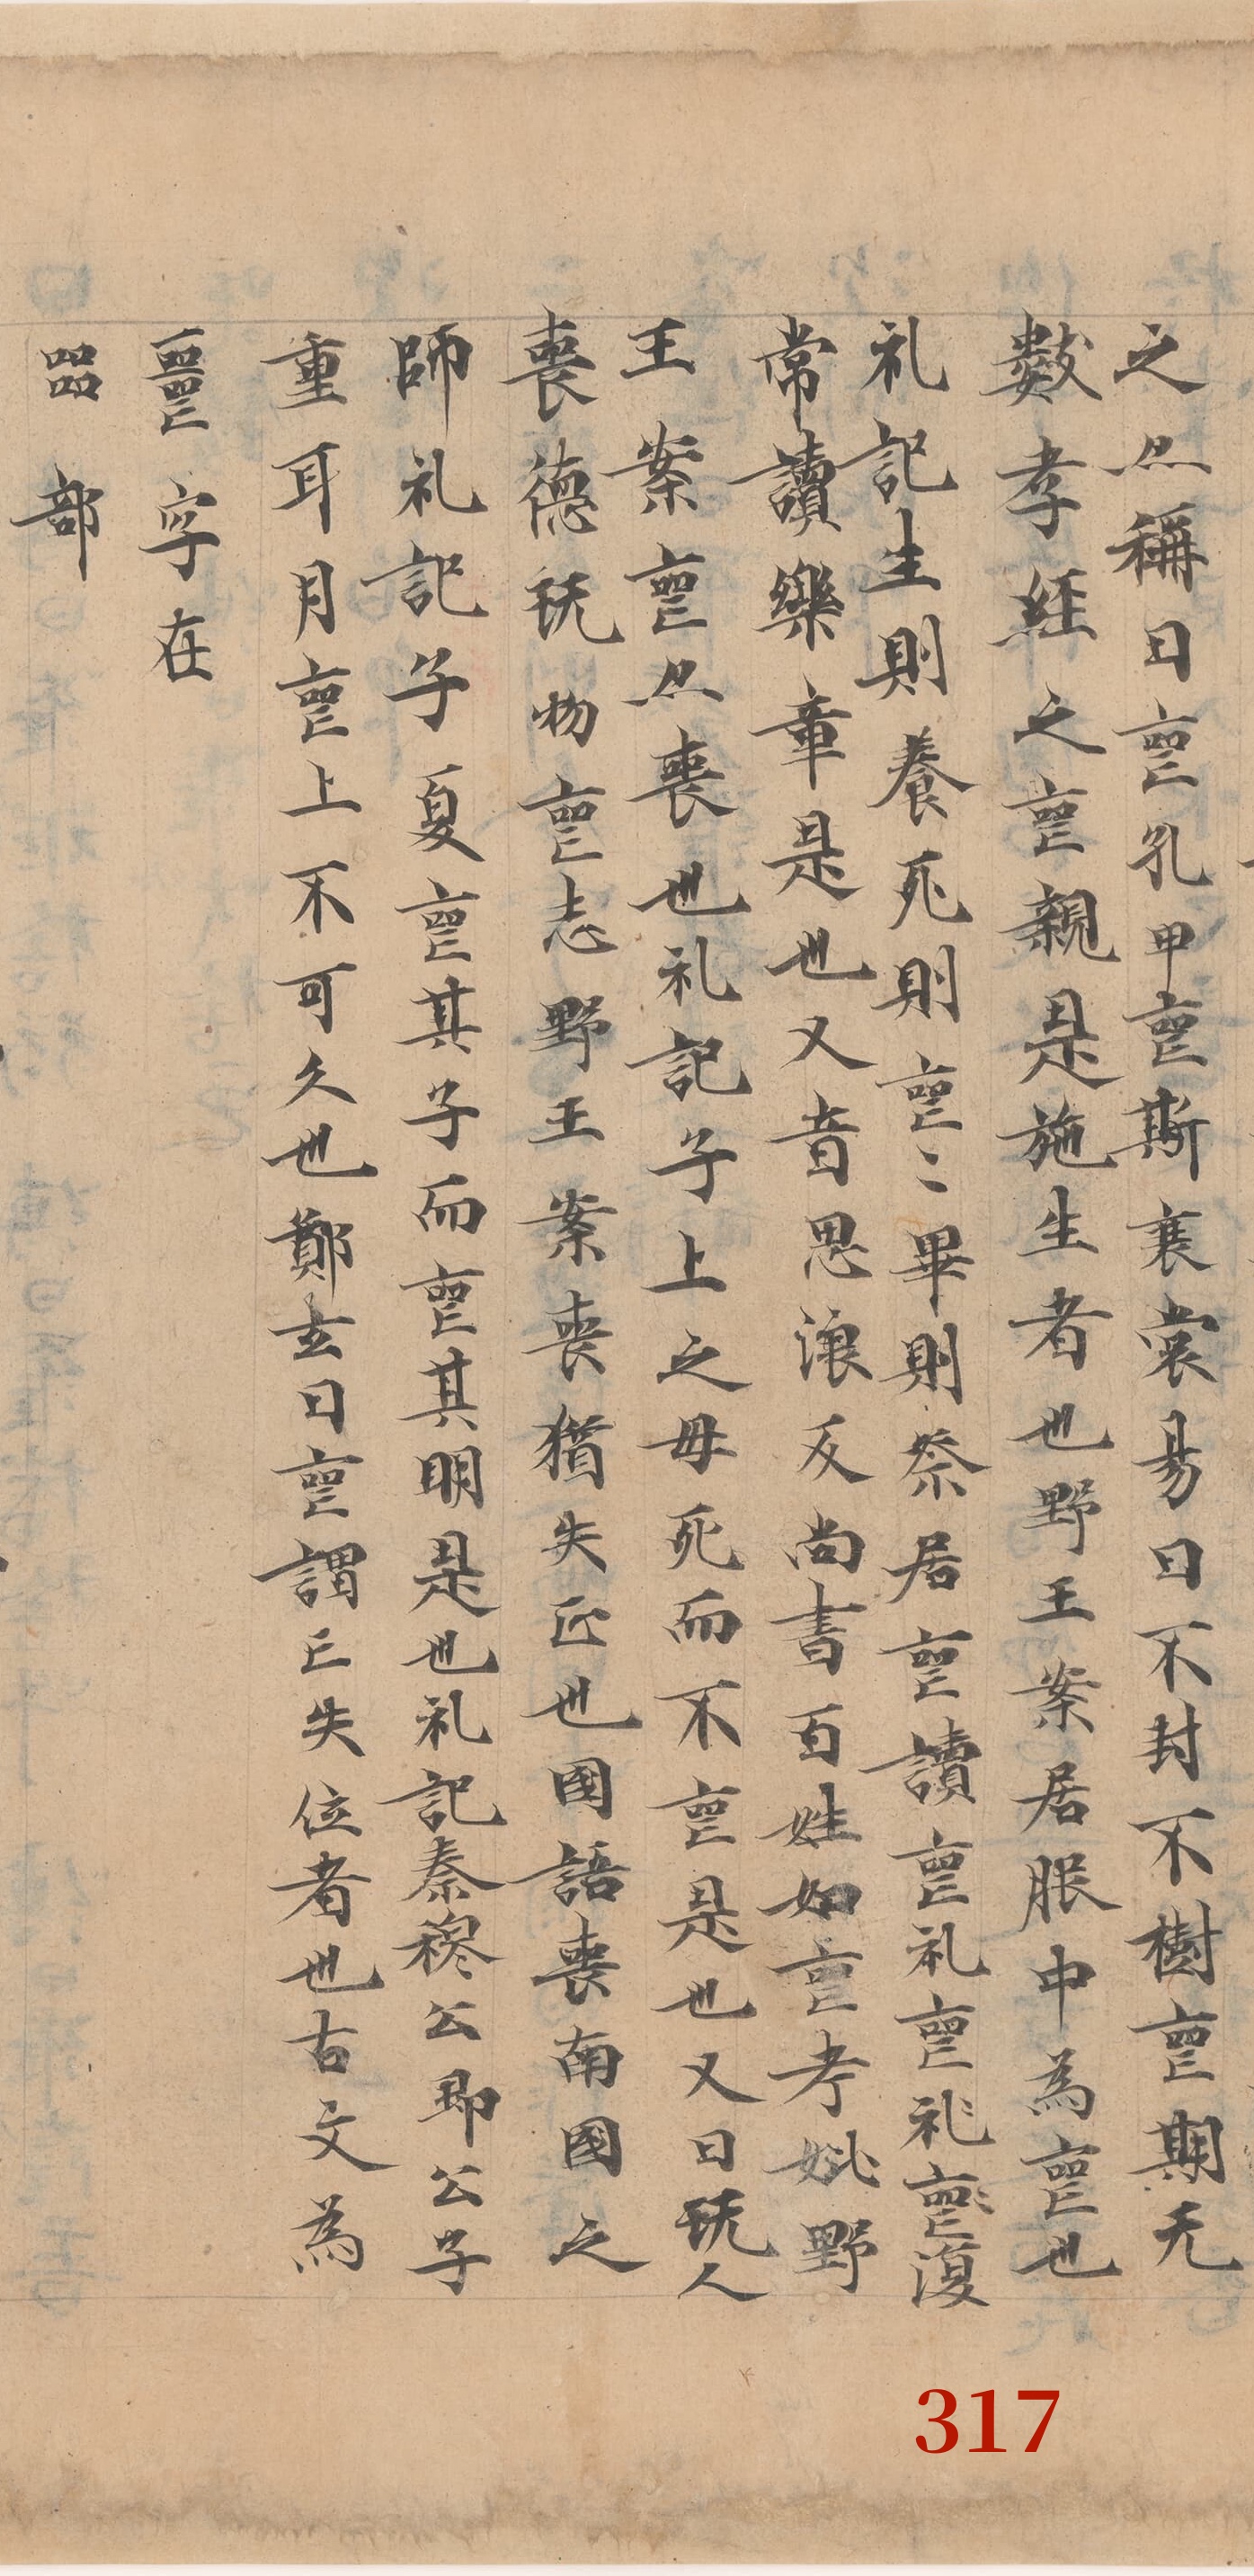 之亾稱曰䘮孔甲䘮斯襄裳易曰不封不樹䘮期无
數孝經之䘮親是施生者也野王案居服中為䘮也
礼記生則養死則䘮〻畢則祭居䘮讀䘮礼䘮礼䘮復
常讀樂章是也又音思浪反尚書百姓如䘮考妣野
王案䘮亾喪也礼記子上之母死而不䘮是也又曰玩人
喪德玩物䘮志野王案喪猶失正也國語喪南國之
師礼記子夏䘮其子而䘮其明是也礼記秦穆公即公子
重耳月䘮上不可久也鄭玄曰䘮謂亡失位者也古文為
噩字在
㗊部
317